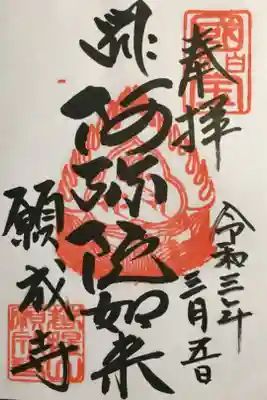 奉拝
阿弥陀如来
願成寺
令和三年
三月五日